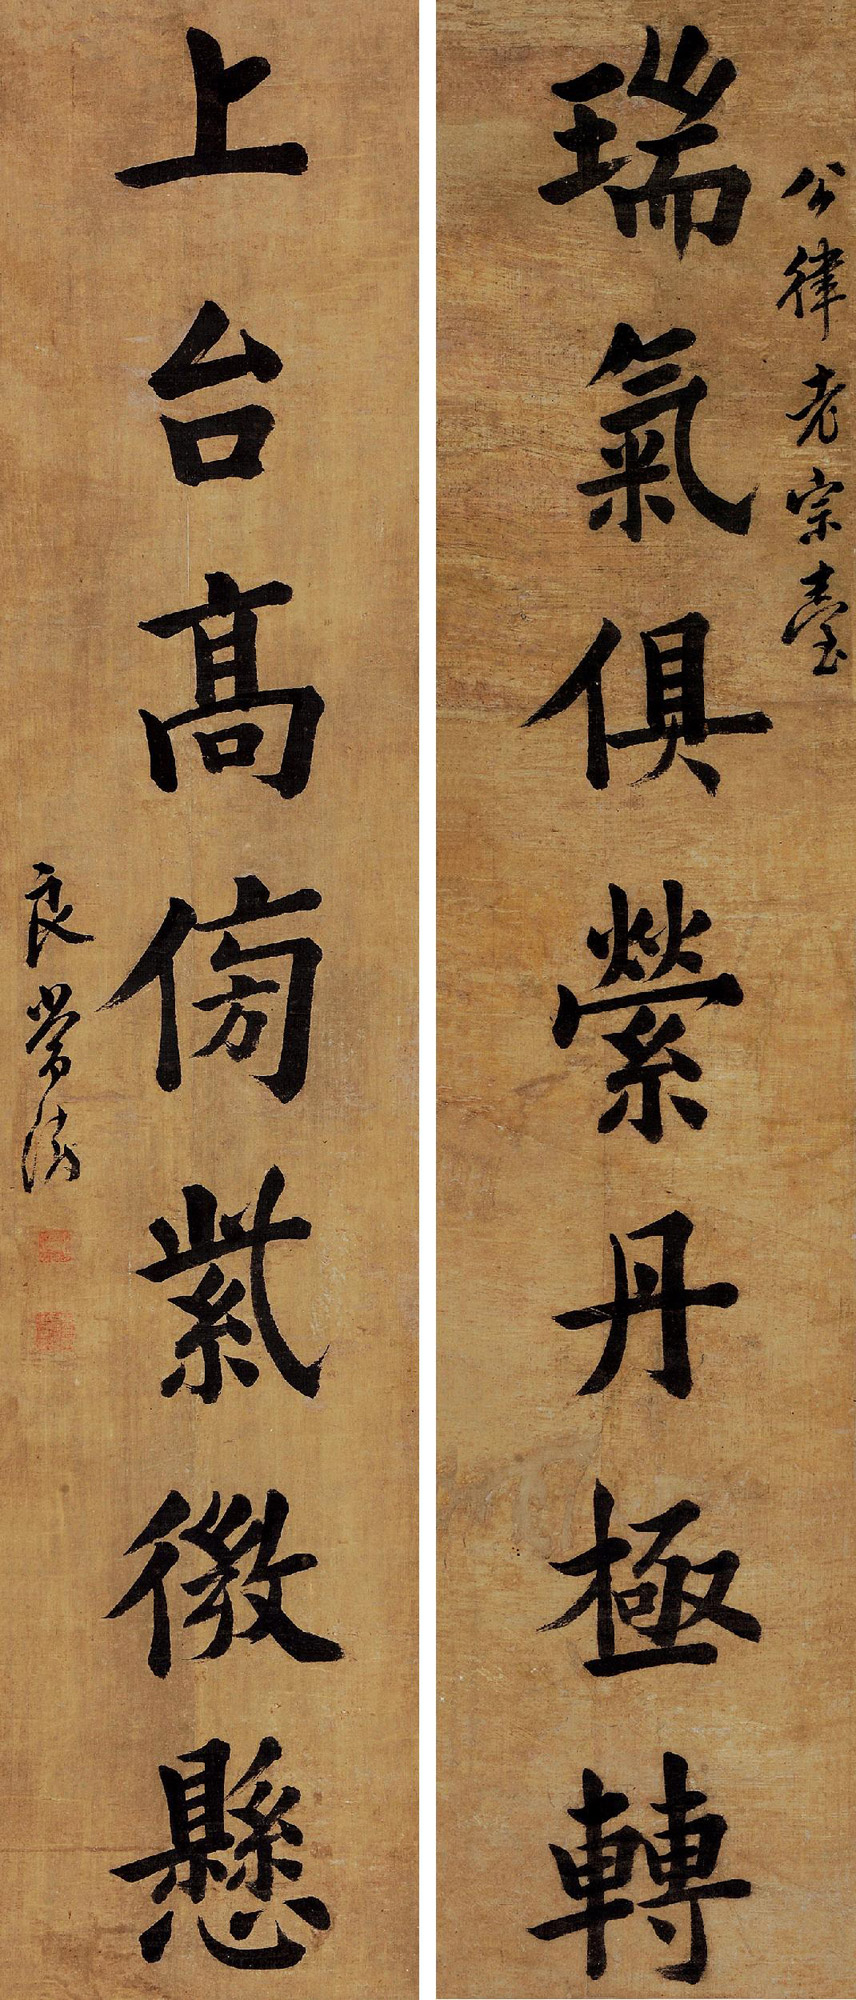 公律老宗臺
瑞氣俱縈丹極轉
上台高傍紫微懸
良常澍